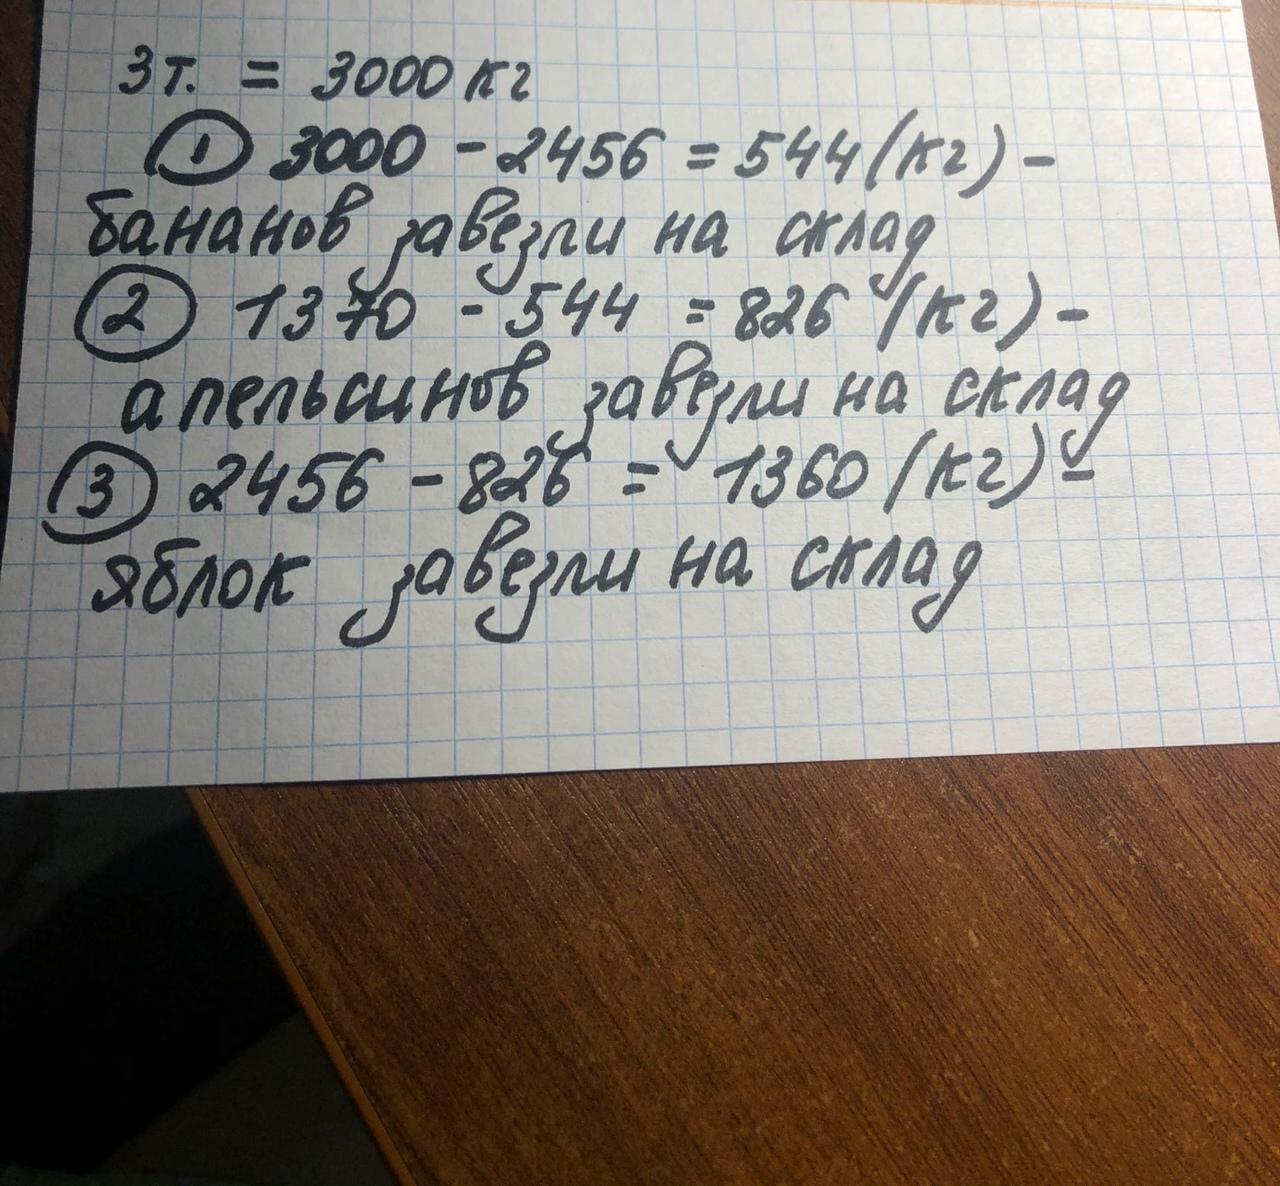 3т. = 3000 кг
① 3000 - 2456 = 544 (кг) -
бананов завезли на склад
② 1370 - 544 = 826 (кг) -
апельсинов завезли на склад
③ 2456 - 826 = 1360 (кг) -
яблок завезли на склад